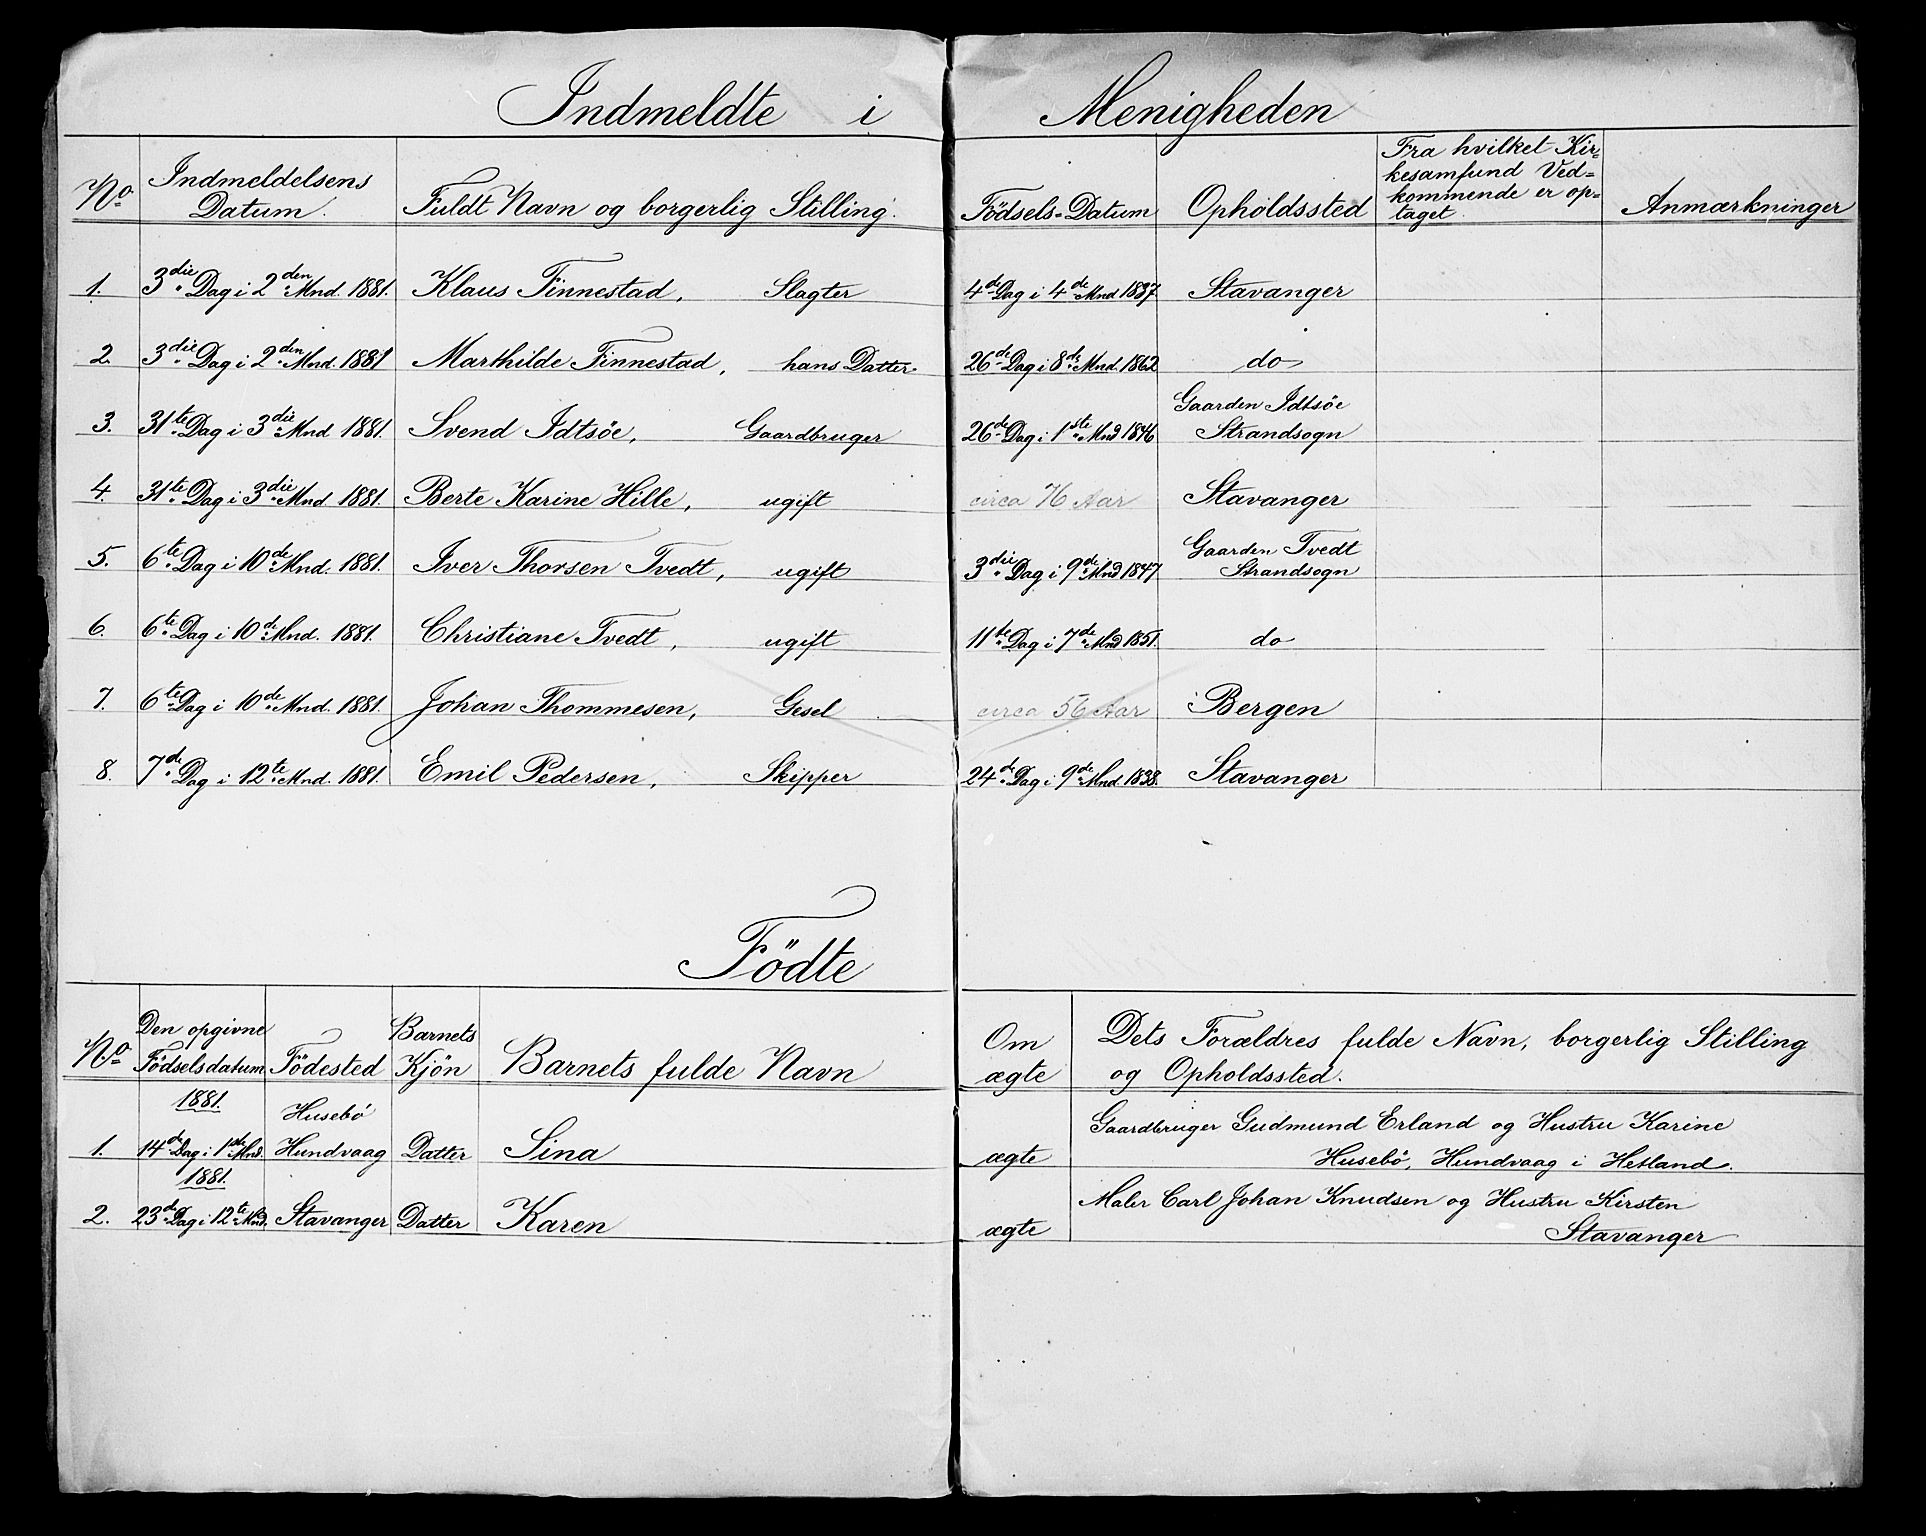 Indmeldte i Menigheden
No Indmeldelsens Datum. Fuldt Navn og borgerlig Stilling. Födsels=Datum Opholdssted Fra hvilket Kir=kesamfund Ved=kommende er op=taget. Anmærkninger
1. 3die Dag i 2den Mnd. 1881. Klaus Finnestad, Slagter 4de Dag i 4de Mnd 1837 Stavanger
2. 3die Dag i 2den Mnd. 1881 Marthilde Finnestad, hans Datter. 26de Dag i 8de Mnd. 1862 do
3. 31te Dag i 3die Mnd 1881. Svend Idtsöe, Gaardbruger 26de Dag i 1ste Mnd 1846 Gaarden Idtsöe Strandsogn
4. 31te Dag i 3die Mnd. 1881. Berte Karine Hille, ugift circa 76 Aar Stavanger
5. 6te Dag i 10de Mnd. 1881. Iver Thorsen Tvedt, ugift 3die Dag i 9de Mnd 1847 Gaarden Tvedt Strandsogn
6. 6te Dag i 10de Mnd. 1881. Christiane Tvedt, ugift 11te Dag i 7de Mnd 1851. do
7. 6te Dag i 10de Mnd. 1881. Johan Thommesen, Gesel circa 56 Aar Bergen
8. 7de Dag i 12te Mnd. 1881. Emil Pedersen, Skipper 24de Dag i 9de Mnd. 1838. Stavanger
Födte
No Den opgivne Födselsdatum Födested Barnets Kjön Barnets fulde Navn Om ægte Dets Forældres fulde Navn, borgerlig Stilling og Opholdssted.
1. 1881. 14de Dag i 1ste Mnd. Husebö Hundvaag Datter Sina ægte Gaardbruger Gudmund Erland og Hustru Karine Husebö, Hundvaag i Hetland.
2. 1881. 23de Dag i 12te Mnd. Stavanger Datter Karen ægte Maler Carl Johan Knudsen og Hustru Kirsten Stavanger